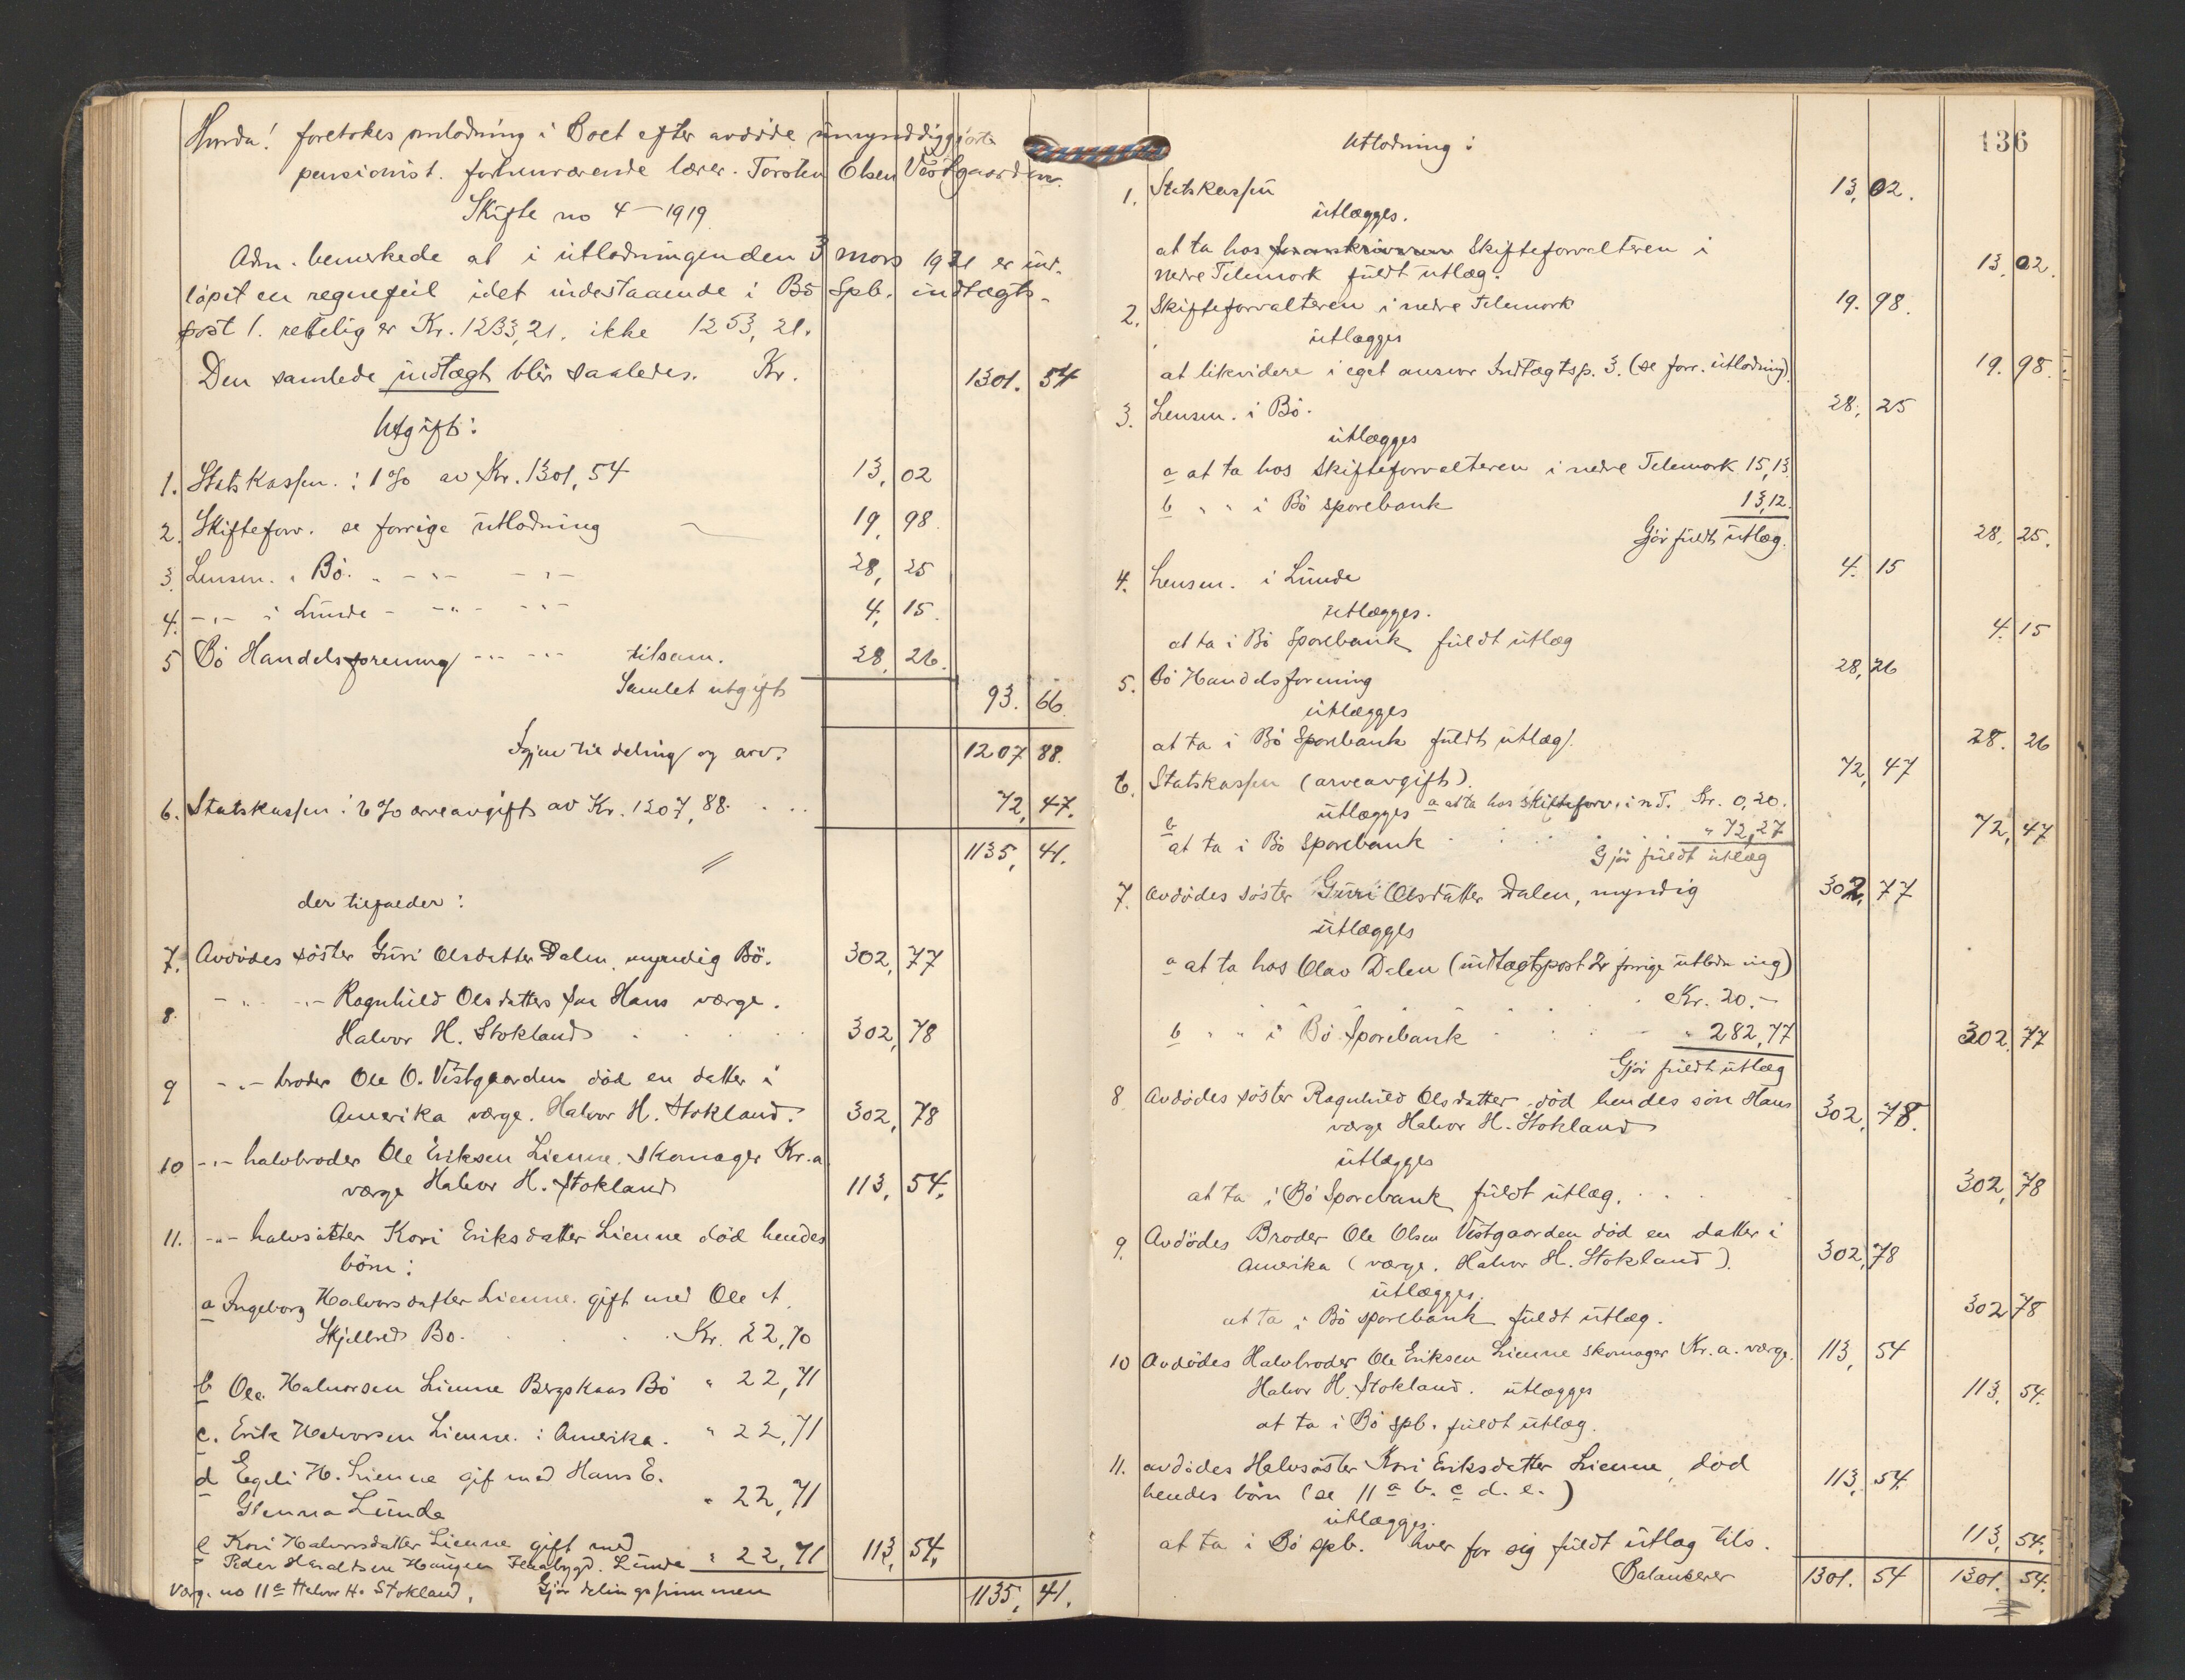 Hvorda! foretokes omlodning i Boet efter avdöde umynddiggjorte
pensionist. forhenværende lærer. Torsten Olsen Vestgaarden.
Skifte no 4 - 1919
Adm. bemerkede at i utlodningen den 3 mars 1921 er ind-
löpet en regnefeil idet indestaaende i Bö Spb. indtægts-
post 1. rettelig er Kr. 1233,21. ikke 1253,21.
Den samlede indtægt blir saaledes. Kr. 1301. 54
Utgift:
1. Statskassen.: 1 % av Kr. 1301,54 13, 02
2. Skifteforv. se forrige utlodning 19, 98
3. Lensm. i Bö. " - " - - " - 28, 25
4. - " - i Lunde - - " - - " - 4, 15.
5 Bö Handelsforening - " - - " - tilsam. 28, 26.
Samlet utgift 93. 66.
Igjen til deling og arv. 1207 88.
6. Statskassen: 6 % arveavgift av Kr. 1207,88. 72, 47.
1135, 41.
der tilfalder:
7. Avdödes söster Guri Olsdatter Dalen, myndig Bö. 302, 77
8. - " - - " - Ragnhild Olsdatters sön Hans værge.
Halvor H. Stokland 302, 78
9 - " - broder Ole O. Vestgaarden död en datter i
Amerika værge. Halvor H. Stokland. 302, 78
10 - " - halvbroder Ole Eriksen Lienne. Skomager Kr.a
værge Halvor H. Stokland 113, 54.
11. - " - halvsöster Kari Eriksdatter Lienne död hendes
börn:
a Ingeborg Halvorsdatter Lienne. gift med Ole A.
Skjelbred Bö. Kr. 22,70
b Ole Halvorsen Lienne Bergskaas Bö " 22,71
c. Erik Halvorsen Lienne. i Amerika. " 22,71
d Egeli H. Lienne gif med Hans E.
Glenna Lunde " 22,71
e Kari Halvorsdatter Lienne gift med
Peder Haraldsen Haugen Flaabygd. Lunde " 22,71 113, 54.
Værg. no 11 c Halvor H. Stokland. Gjör delingssummen 1135, 41.
136
Utlodning:
1. Statskassen 13, 02.
utlægges.
at ta hos Skifteforvalteren i
nedre Telemark fuldt utlæg. 13, 02.
2. Skifteforvalteren i nedre Telemark 19. 98.
utlægges
at likvidere i eget ansvar Indtægtsp. 3. (se forr. utlodning). 19. 98.
3. Lensm. i Bö. 28, 25
utlægges
a at ta hos Skifteforvalteren i nedre Telemark 15,13
b " " i Bö sparebank 13,12.
Gjör fuldt utlæg. 28, 25.
4. Lensm. i Lunde 4. 15
utlægges.
at ta i Bö Sparebank fuldt utlæg 4. 15
5. Bö Handelsforening 28, 26
utlægges
at ta i Bö Sparebank fuldt utlæg. 28. 26
6. Statskassen (arveavgift). 72, 47
utlægges a at ta hos Skifteforv. i n T. Kr. 0,20.
b at ta i Bö Sparebank " 72,27 72, 47
Gjör fuldt utlæg
7. Avdödes söster Guri Olsdatter Dalen, myndig 302, 77
utlægges
a at ta hos Olav Dalen (indtægtspost 2 forrige utlodning)
Kr. 20.-
b " " i Bö Sparebank " 282,77 302, 77
Gjör fuldt utlæg
8 Avdödes söster Ragnhild Olsdatter död hendes sön Hans 302, 78.
værge Halvor H. Stokland
utlægges
at ta i Bö Sparebank fuldt utlæg. 302, 78
9. Avdödes Broder Ole Olsen Vestgaarden död en datter i
Amerika (værge. Halvor H. Stokland). 302, 78
utlægges.
at ta i Bö sparebank fuldt utlæg. 302 78
10 Avdödes Halvbroder Ole Eriksen Lienne skomager Kr. a. værge. 113, 54
Halvor H. Stokland. utlægges 113, 54.
at ta i Bö spb. fuldt utlæg.
11. avdödes Halvsöster Kari Eriksdatter Lienne, död
hendes börn (se 11 a b. c d. e.) 113, 54.
utlægges.
at ta i Bö spb. hver for sig fuldt utlæg tils. 113, 54.
Balanserer 1301. 54 1301. 54.